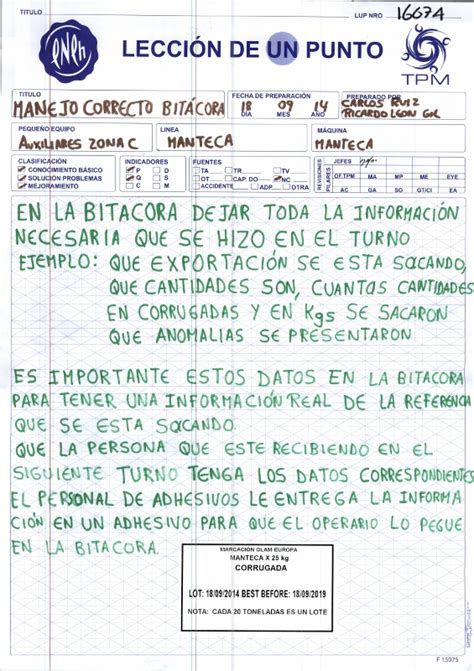 TITULO
LUP NRO 16674
LECCIÓN DE UN PUNTO
TPM
TITULO
MANEJO CORRECTO BITÁCORA
FECHA DE PREPARACIÓN
18 09 14
DIA MES AÑO
PREPARADO POR
CARLOS RUIZ
RICARDO LEON GIL
PEQUEÑO EQUIPO
AUXILIARES ZONA C
LINEA
MANTECA
MÁQUINA
MANTECA
CLASIFICACIÓN
CONOCIMIENTO BÁSICO
SOLUCIÓN PROBLEMAS
MEJORAMIENTO
INDICADORES
P D
Q S
C M
FUENTES
TA TR TV
OT CAP. DO NC
ACCIDENTE ADP OTRA
REVISIONES
PILARES
JEFES
OF.TPM MA MP ME EYE
AC GA SO GT/CI EA
EN LA BITACORA DEJAR TODA LA INFORMACIÓN
NECESARIA QUE SE HIZO EN EL TURNO
EJEMPLO: QUE EXPORTACIÓN SE ESTA SACANDO,
QUE CANTIDADES SON, CUANTAS CANTIDADES
EN CORRUGADAS Y EN Kgs SE SACARON
QUE ANOMALIAS SE PRESENTARON
ES IMPORTANTE ESTOS DATOS EN LA BITACORA
PARA TENER UNA INFORMACIÓN REAL DE LA REFERENCIA
QUE SE ESTA SACANDO.
QUE LA PERSONA QUE ESTE RECIBIENDO EN EL
SIGUIENTE TURNO TENGA LOS DATOS CORRESPONDIENTES
EL PERSONAL DE ADHESIVOS LE ENTREGA LA INFORMA
CIÓN EN UN ADHESIVO PARA QUE EL OPERARIO LO PEGUE
EN LA BITACORA.
MARCACIÓN OLAM EUROPA
MANTECA X 25 kg
CORRUGADA
LOT: 18/09/2014 BEST BEFORE: 18/09/2019
NOTA: CADA 20 TONELADAS ES UN LOTE
F 15075